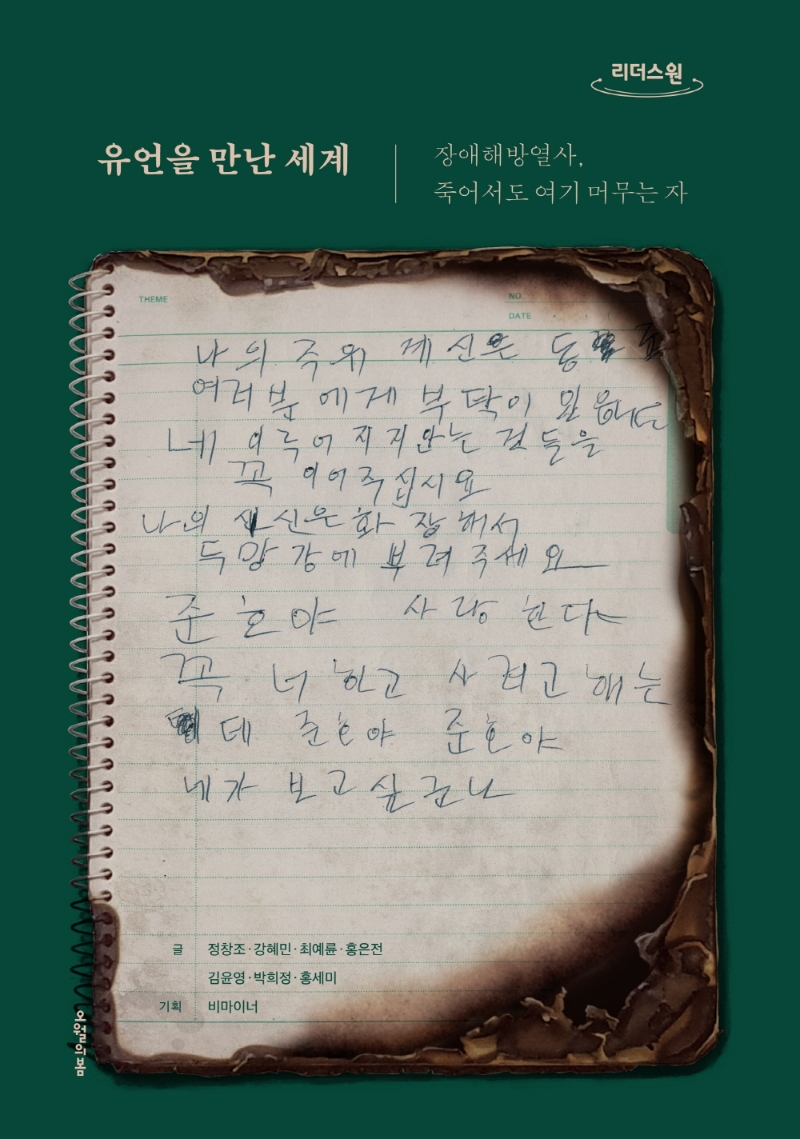 리더스원
유언을 만난 세계
장애해방열사,
죽어서도 여기 머무는 자
THEME
NO.
DATE
나의 죽위 계신은 동
여러분에게 부탁이 있읍니다
네 이루어지지안는 것들을
꼭 이어주십시요
나의 시신은 화장해서
두망강에 뿌려주세요
준호야 사랑한다
꼭 너하고 사려고 해는
데 준호야 준호야
네가 보고싶군나
글 정창조·강혜민·최예륜·홍은전
김윤영·박희정·홍세미
기획 비마이너
오월의봄